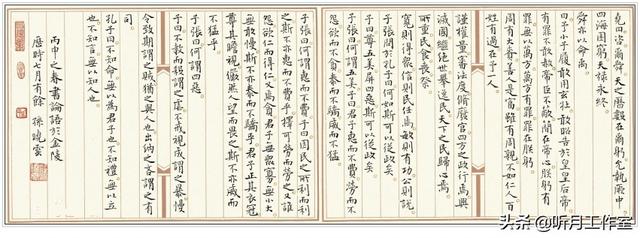 堯曰咨爾舜天之曆數在爾躬允執厥中
四海困窮天祿永終
舜亦以命禹
曰予小子履敢用玄牡敢昭告于皇皇后帝
有罪不敢赦帝臣不蔽簡在帝心朕躬有
罪無以萬方萬方有罪罪在朕躬
周有大賚善人是富雖有周親不如仁人百
姓有過在予一人
謹權量審法度脩廢官四方之政行焉興
滅國繼絕世舉逸民天下之民歸心焉
所重民食喪祭
寬則得眾信則民任焉敏則有功公則說
子張問於孔子曰何如斯可以從政矣
子曰尊五美屏四惡斯可以從政矣
子張曰何謂五美子曰君子惠而不費勞而不
怨欲而不貪泰而不驕威而不猛
子張曰何謂惠而不費子曰因民之所利而利
之斯不亦惠而不費乎擇可勞而勞之又誰
怨欲仁而得仁又焉貪君子無眾寡無小大
無敢慢斯不亦泰而不驕乎君子正其衣冠
尊其瞻視儼然人望而畏之斯不亦威而
不猛乎
子張曰何謂四惡
子曰不教而殺謂之虐不戒視成謂之暴慢
令致期謂之賊猶之與人也出納之吝謂之有
司
孔子曰不知命無以為君子也不知禮無以立
也不知言無以知人也
丙申之春書論語於金陵
歷時七月有餘 孫曉雲
头条 @听月工作室